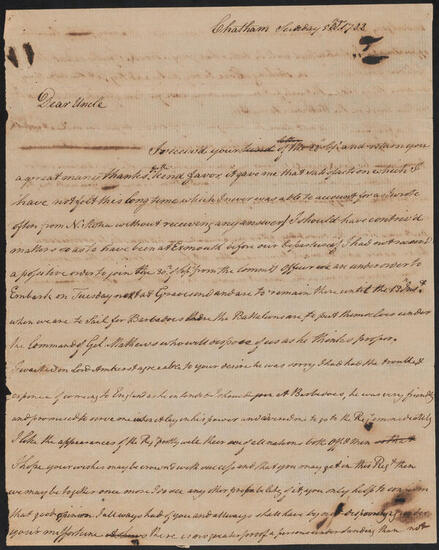 Chatham Sunday 5th 1782
Dear Uncle
I received your letter of the and return you
a great many thanks kind favor it gave me that satisfaction which I
have not felt this long time which I never was able to account for as I wrote
often from without receiving any answer I should have contrived
matters so as to have been at Exmouth before our Departure if I had not received
a possitive order to join the 30th from the Commg Officer we are under order to
Embark on Tuesday next at Gravesend and are to remain there until the
when we are to Sail for Barbados where the Battalions are to put themselves under
the Command of Gel. Mathews who will dispose of us as he thinks proper.
I waited on Lord Amherst agreeable to your desire he was sorry I had had the trouble &
expence of coming to England as he intends I should at Barbados, he was very friendly
and promised to serve me in his power and me to go to the Regt immediately
I like the appearances of the Regt pretty well there are of all nations both Offrs & men
I hope your wishes may be crown'd with success and that you may get in this Regt then
we may be together once more I see any other probability of it, you only help to confirm
that good opinion I always had of you and allways shall have by not
your misfortune there is no greater proof of a persons understanding than not